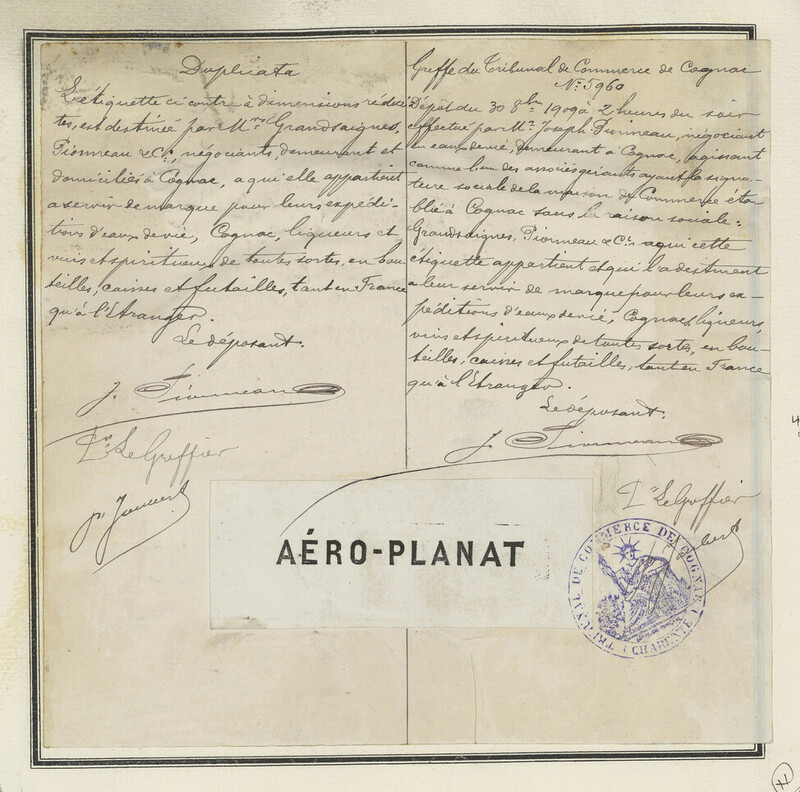 Duplicata
L'étiquette ci contre à dimensions rédui-
tes, est destinée par Mrs Grandsaignes,
Pionneau & Cie, négociants, demeurant et
domiciliés à Cognac, a qu'elle appartient
a servir de marque pour leurs expédi-
tions d'eaux de vie, Cognac, liqueurs et
vins et spiritueux de toutes sortes, en bou
teilles, caisses et futailles, tant en France
qu'à l'Etranger.
Le déposant.
J. Pionneau
Pr Le Greffier
Greffe du Tribunal de Commerce de Cognac
No 5960
Dépôt du 30 8bre 1909 à 2 heures du soir
effectué par Mr Joseph Pionneau, négociant
en eaux de vie, demeurant à Cognac, agissant
comme l'un des associés gérants ayant la signa-
ture sociale de la maison de Commerce éta
blie à Cognac sous la raison sociale:
Grandsaignes, Pionneau & Cie a qui cette
étiquette appartient et qui l'a destinent
a leur servir de marque pour leurs ex-
péditions d'eaux de vie, Cognac, liqueurs,
vins et spiritueux de toutes sortes, en bou-
teilles, caisses et futailles, tant en France
qu'à l'Etranger.
Le déposant.
J. Pionneau
Pr Le Greffier
AÉRO-PLANAT
TRIBUNAL DE COMMERCE DE COGNAC
(CHARENTE)